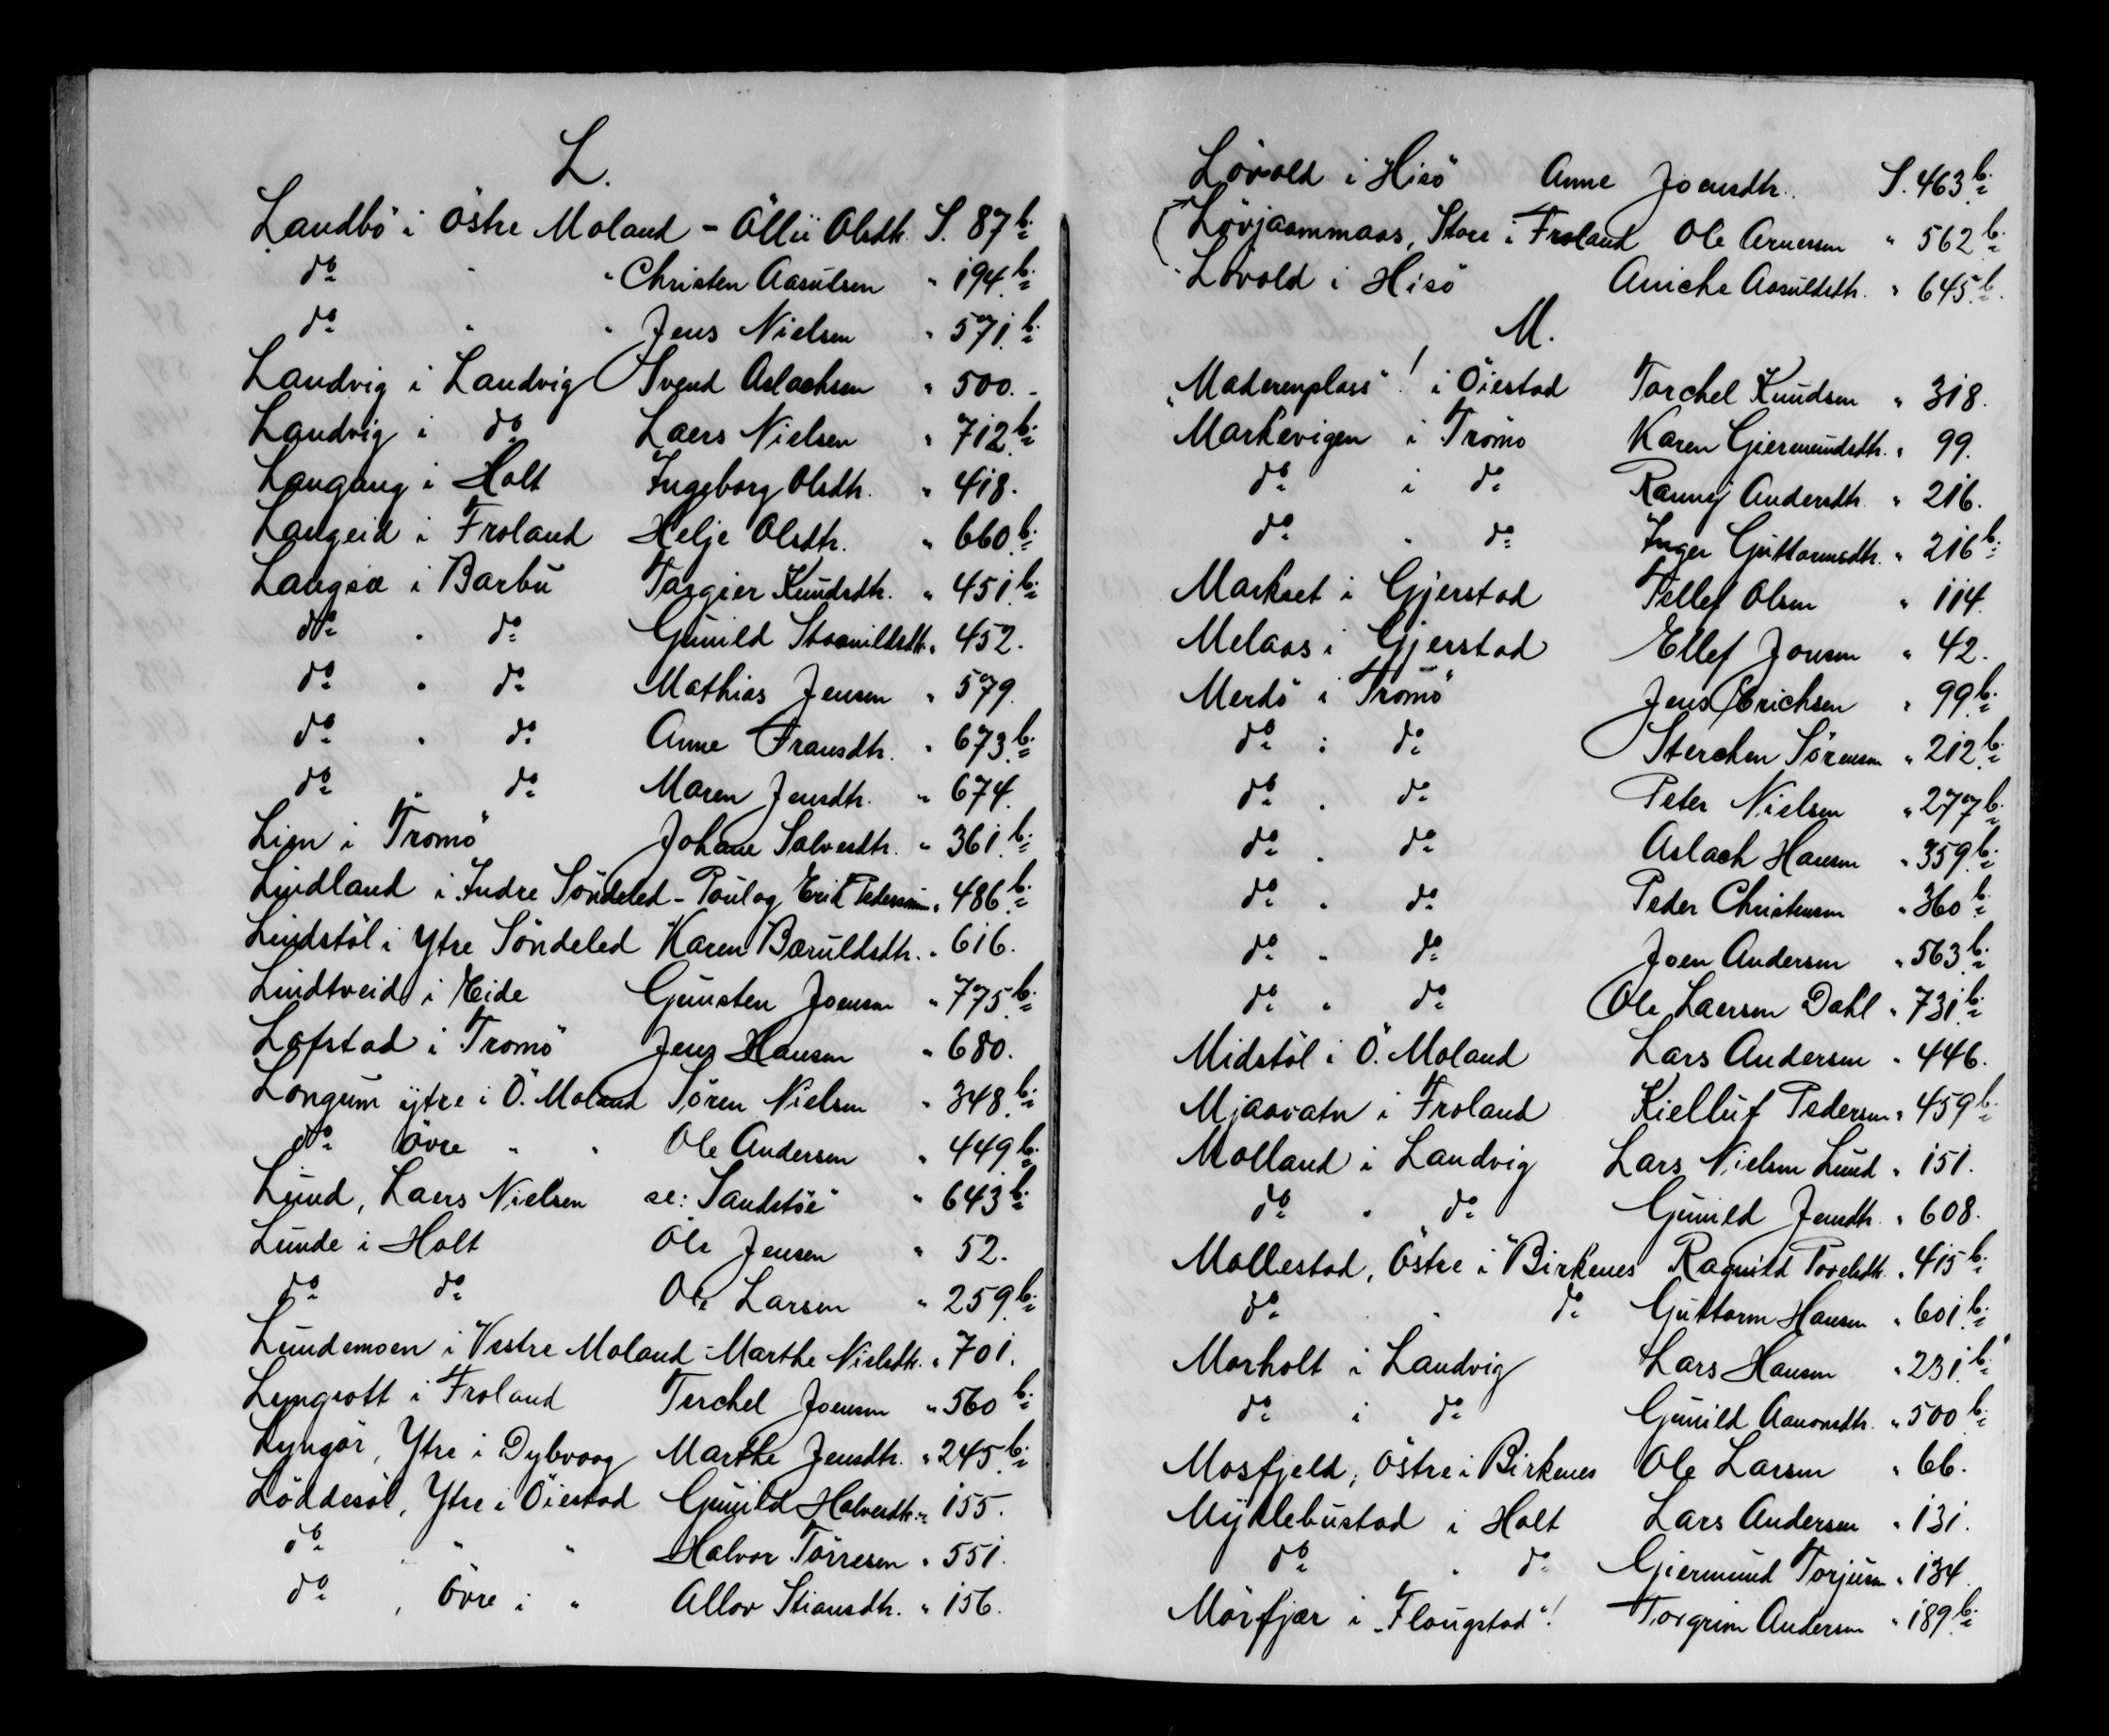 L.
Landbö i Östre Moland - Öllu Olsdtr. S. 87 b.
do " " Christen Aasulsen " 194. b.
do " " Jens Nielsen " 571. b.
Landvig i Landvig Svend Aslachsen " 500. -
Landvig i do Laers Nielsen " 712. b.
Langang i Holt Ingeborg Olsdtr. " 418.
Langeid i Froland Helje Olsdtr. " 660. b.
Langsæ i Barbu Targier Knudsdtr. " 451. b.
do " do Gunild Stoanildsdtr. " 452.
do " do Mathias Jensen " 579.
do " do Anne Fransdtr. " 673. b.
do " do Maren Jensdtr. " 674.
Lien i Tromö Johane Salvesdtr. " 361. b.
Lindland i Indre Söndeled - Poul og Erik Pederssön " 486. b.
Lindstöl i Ytre Söndeled Karen Bæruldsdtr. " 616.
Lindtveid i Eide Gunsten Joensen " 775. b.
Lofstad i Tromö Jens Hansen " 680.
Longum ytre i Ö. Moland Sören Nielsen " 348. b.
do Övre " " Ole Andersen " 449. b.
Lund, Laers Nielsen se: Sandstöe " 643. b.
Lunde i Holt Ole Jensen " 52.
do do Ole Larsen " 259. b.
Lundemoen i Vestre Moland - Marthe Nielsdtr. " 701.
Lyngrott i Froland Terchel Joensen " 560 b.
Lyngör, Ytre i Dybvaag Marthe Jensdtr. " 245. b.
Löddesöl, Ytre i Öiestad Gunild Halvorsdtr. " 155.
do " " Halvor Törresen " 551.
do , Övre i " Allov Stiansdtr. " 156.
Lövold i Hisö Anne Joensdtr. S. 463. b.
Lövjaammaas, Store i Froland Ole Arnesen " 562 b.
Lövold i Hisö Aniche Aasuldsdtr. " 645. b.
M.
"Maderenplass"! i Öiestad Torchel Knudsen " 318.
Markevigen i Tromö Karen Giermundsdtr. " 99.
do i do Ranny Andersdtr. " 216.
do " do Inger Guttormsdtr. " 216 b.
Markset i Gjerstad Tellef Olsen " 114.
Melaas i Gjerstad Ellef Jonsen " 42.
Merdö i Tromö Jens Erichsen " 99. b.
do i do Sterchen Sörensen " 212. b.
do " do Peter Nielsen " 277 b.
do " do Aslach Hansen " 359. b.
do " do Peder Christensen " 360 b.
do " do Joen Andersen " 563. b.
do " do Ole Laersen Dahl " 731. b.
Midstöl i Ö. Moland Lars Andersen " 446.
Mjaavatn i Froland Kielluf Pedersen " 459 b.
Molland i Landvig Lars Nielsen Lund " 151.
do " do Gunild Jensdtr. " 608.
Mollestad, Östre i Birkenes Ragnild Povelsdtr. " 415 b.
do " do Guttorm Hansen " 601. b.
Morholt i Landvig Lars Hansen " 231. b.
do i do Gunild Aanonsdtr. " 500 b.
Mosfjeld, Östre i Birkenes Ole Larsen " 66.
Myklebustad i Holt Lars Andersen " 131.
do " do Giermund Torjusen " 134.
Mörfjær i "Flougstad"! Torgrim Andersen " 189. b.